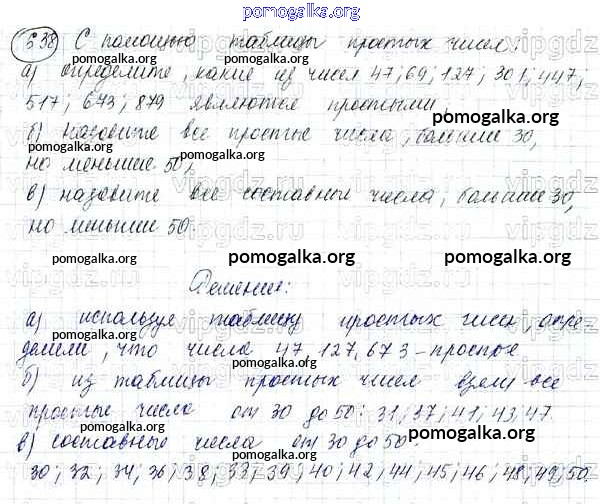 pomogalka.org
538 С помощью таблицы простых чисел:
а) определите, какие из чисел 47; 69; 127; 301; 447;
pomogalka.org
517; 673; 879 являются простыми;
pomogalka.org
б) назовите все простые числа, большие 30,
pomogalka.org
но меньшие 50;
pomogalka.org
в) назовите все составные числа, большие 30,
но меньшие 50.
pomogalka.org pomogalka.org pomogalka.org
Решение:
pomogalka.org
а) используя таблицу простых чисел, опре-
pomogalka.org
делели, что числа 47, 127, 673 - простые
pomogalka.org
б) из таблицы простых чисел взели все
pomogalka.org
простые числа от 30 до 50: 31; 37; 41; 43; 47.
в) составные числа от 30 до 50:
pomogalka.org pomogalka.org
30; 32; 34; 36; 38; 33; 39; 40; 42; 44; 45; 46; 48; 49; 50.
pomogalka.org